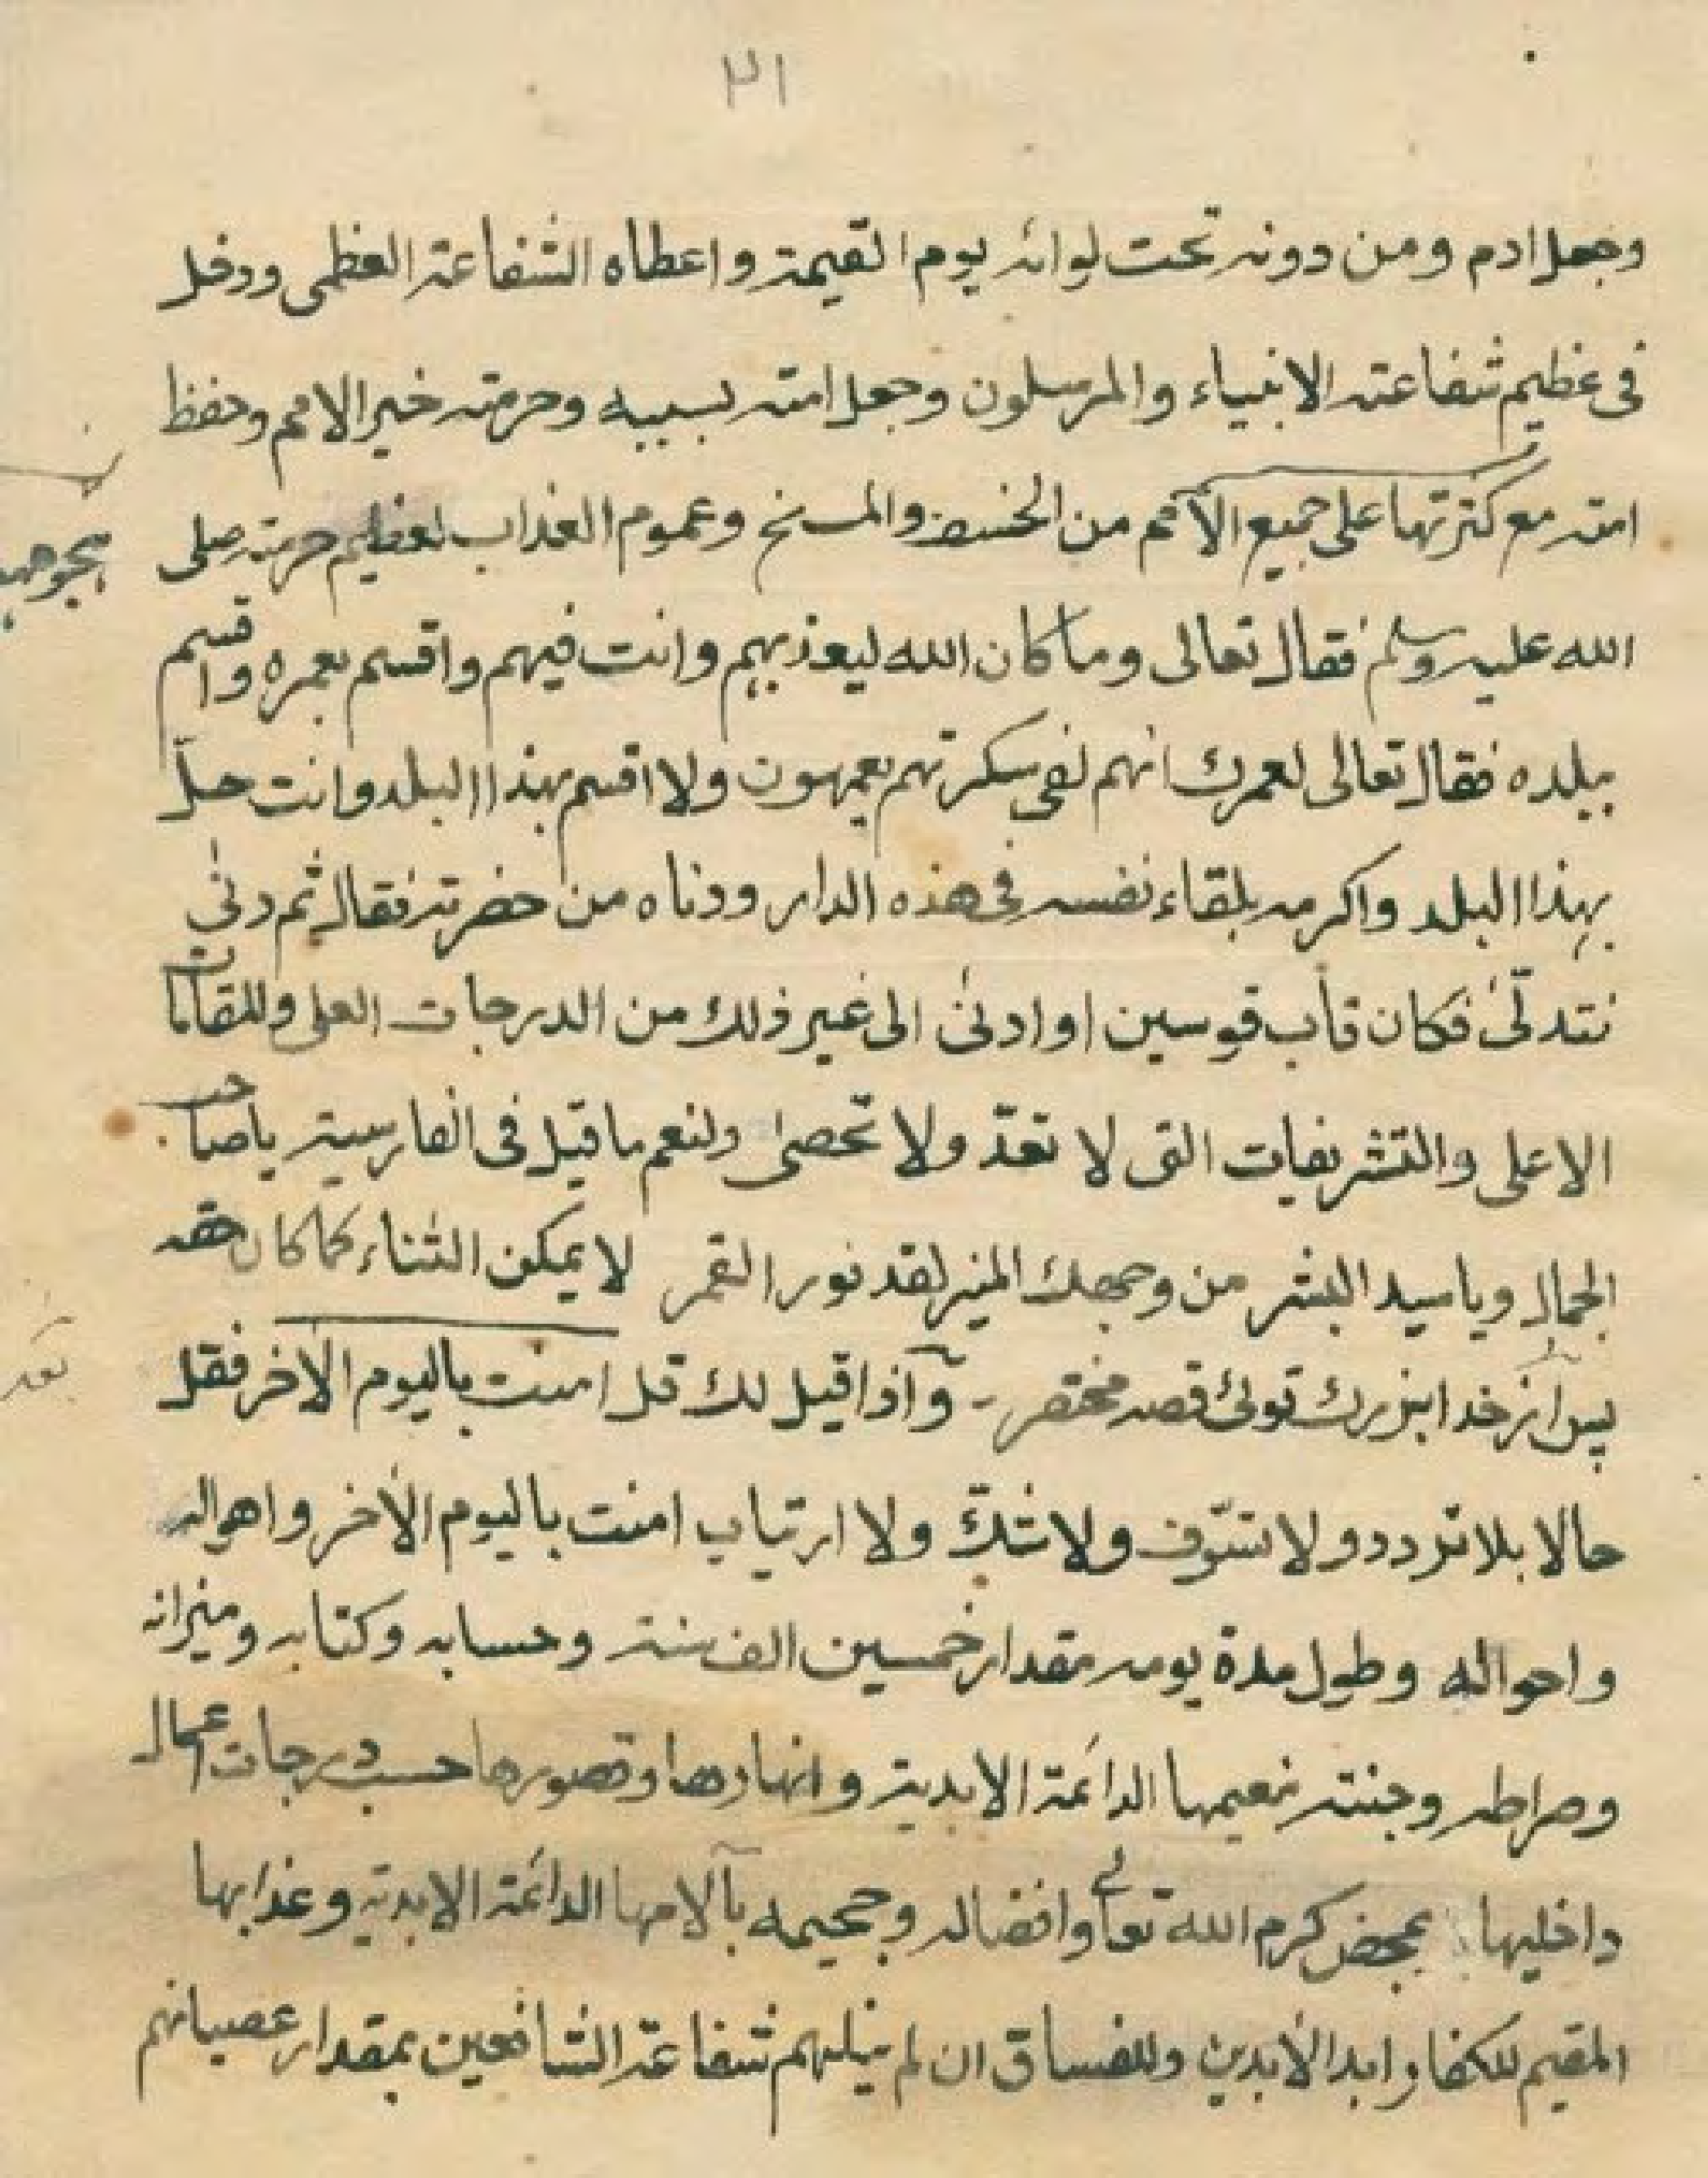 ٣١
وجعل ادم ومن دونه تحت لوائه يوم القيمة واعطاه الشفاعة العظمى ودخل
فى عظيم شفاعته الانبياء والمرسلون وجعل امته بسببه وحرمته خير الامم وحفظ
امته مع كثرتها على جميع الأمم من الخسف والمسخ وعموم العذاب لعظيم حرمته صلى
الله عليه وسلم فقال تعالى وما كان الله ليعذبهم وانت فيهم واقسم بعمره واقسم
ببلده فقال تعالى لعمرك انهم لفى سكرتهم يعمهون ولا اقسم بهذا البلد وانت حلّ
بهذا البلد واكرمه بلقاء نفسه فى هذه الدار ودناه من حضرته فقال ثم دنى
فتدلّى فكان قاب قوسين او ادنى الى غير ذلك من الدرجات العلى والمقامات
الاعلى والتشريفات التى لا تعدّ ولا تحصى ولنعم ما قيل فى الفارسية يا صاحب
الجمال ويا سيد البشر من وجهك المنير لقد نور القمر لا يمكن الثناء كما كان حقه
پس از خدا بزرك توئى قصه مختصر - وآذا قيل لك قل امنت باليوم الآخر فقل
حالا بلا تردد ولا تسوّف ولا شكّ ولا ارتياب امنت باليوم الأخر واهواله
واحواله وطول مدة يومه مقدار خمسين الف سنة وحسابه وكتابه وميزانه
وصراطه وجنته نعيمها الدائمة الابدية وانهارها وقصورها حسب درجات اعمال
داخليها بمحض كرم الله تعالى وافضاله وجحيمه بآلامها الدائمة الابدية وعذابها
المقيم للكفار ابد الأبدين وللفساق ان لم ينلهم شفاعة الشافعين بمقدار عصيانهم